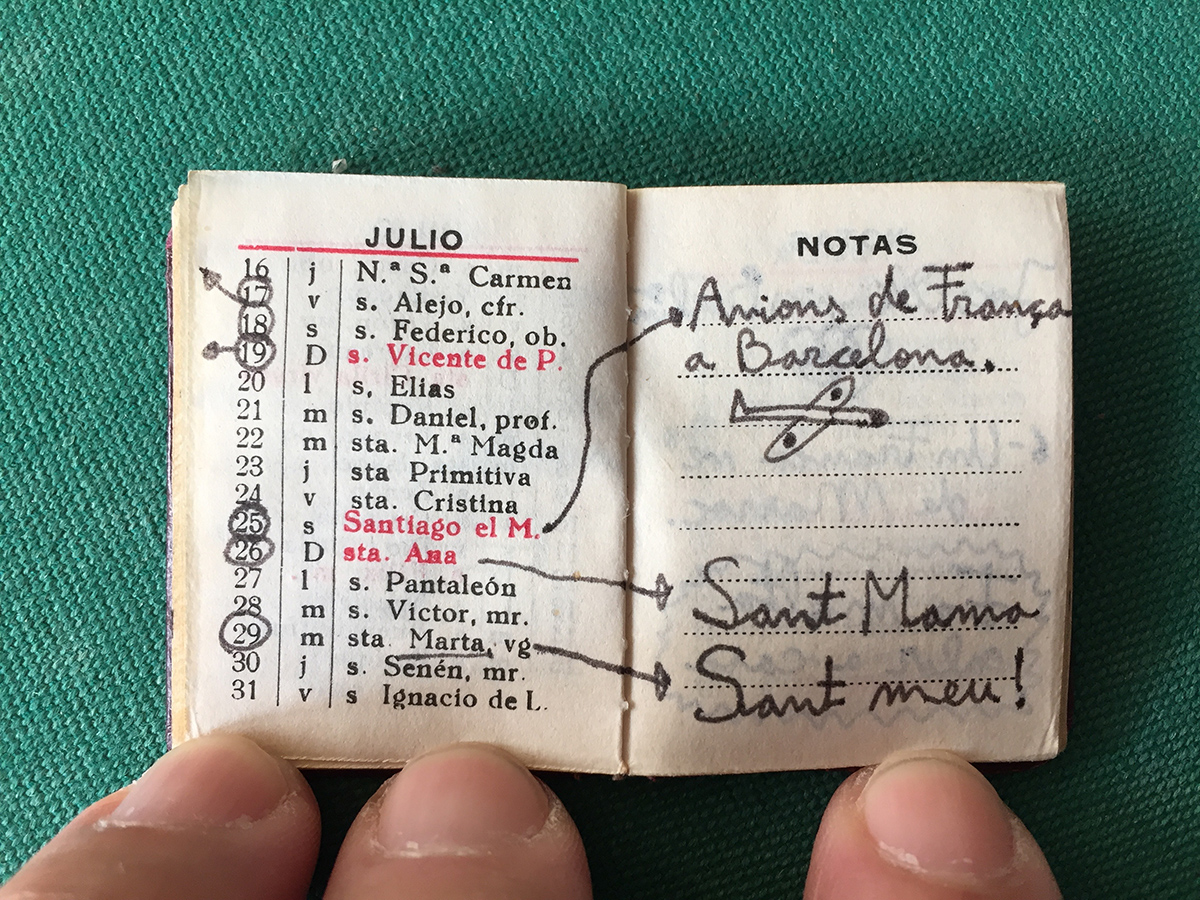 JULIO
16 j N.ª S.ª Carmen
17 v s. Alejo, cfr.
18 s s. Federico, ob.
19 D s. Vicente de P.
20 l s, Elias
21 m s. Daniel, prof.
22 m sta. M.ª Magda
23 j sta Primitiva
24 v sta. Cristina
25 s Santiago el M.
26 D sta. Ana
27 l s. Pantaleón
28 m s. Víctor, mr.
29 m sta Marta, vg
30 j s. Senén, mr.
31 v s Ignacio de L.
NOTAS
Anions de França
a Barcelona.
Sant Mama
Sant meu!